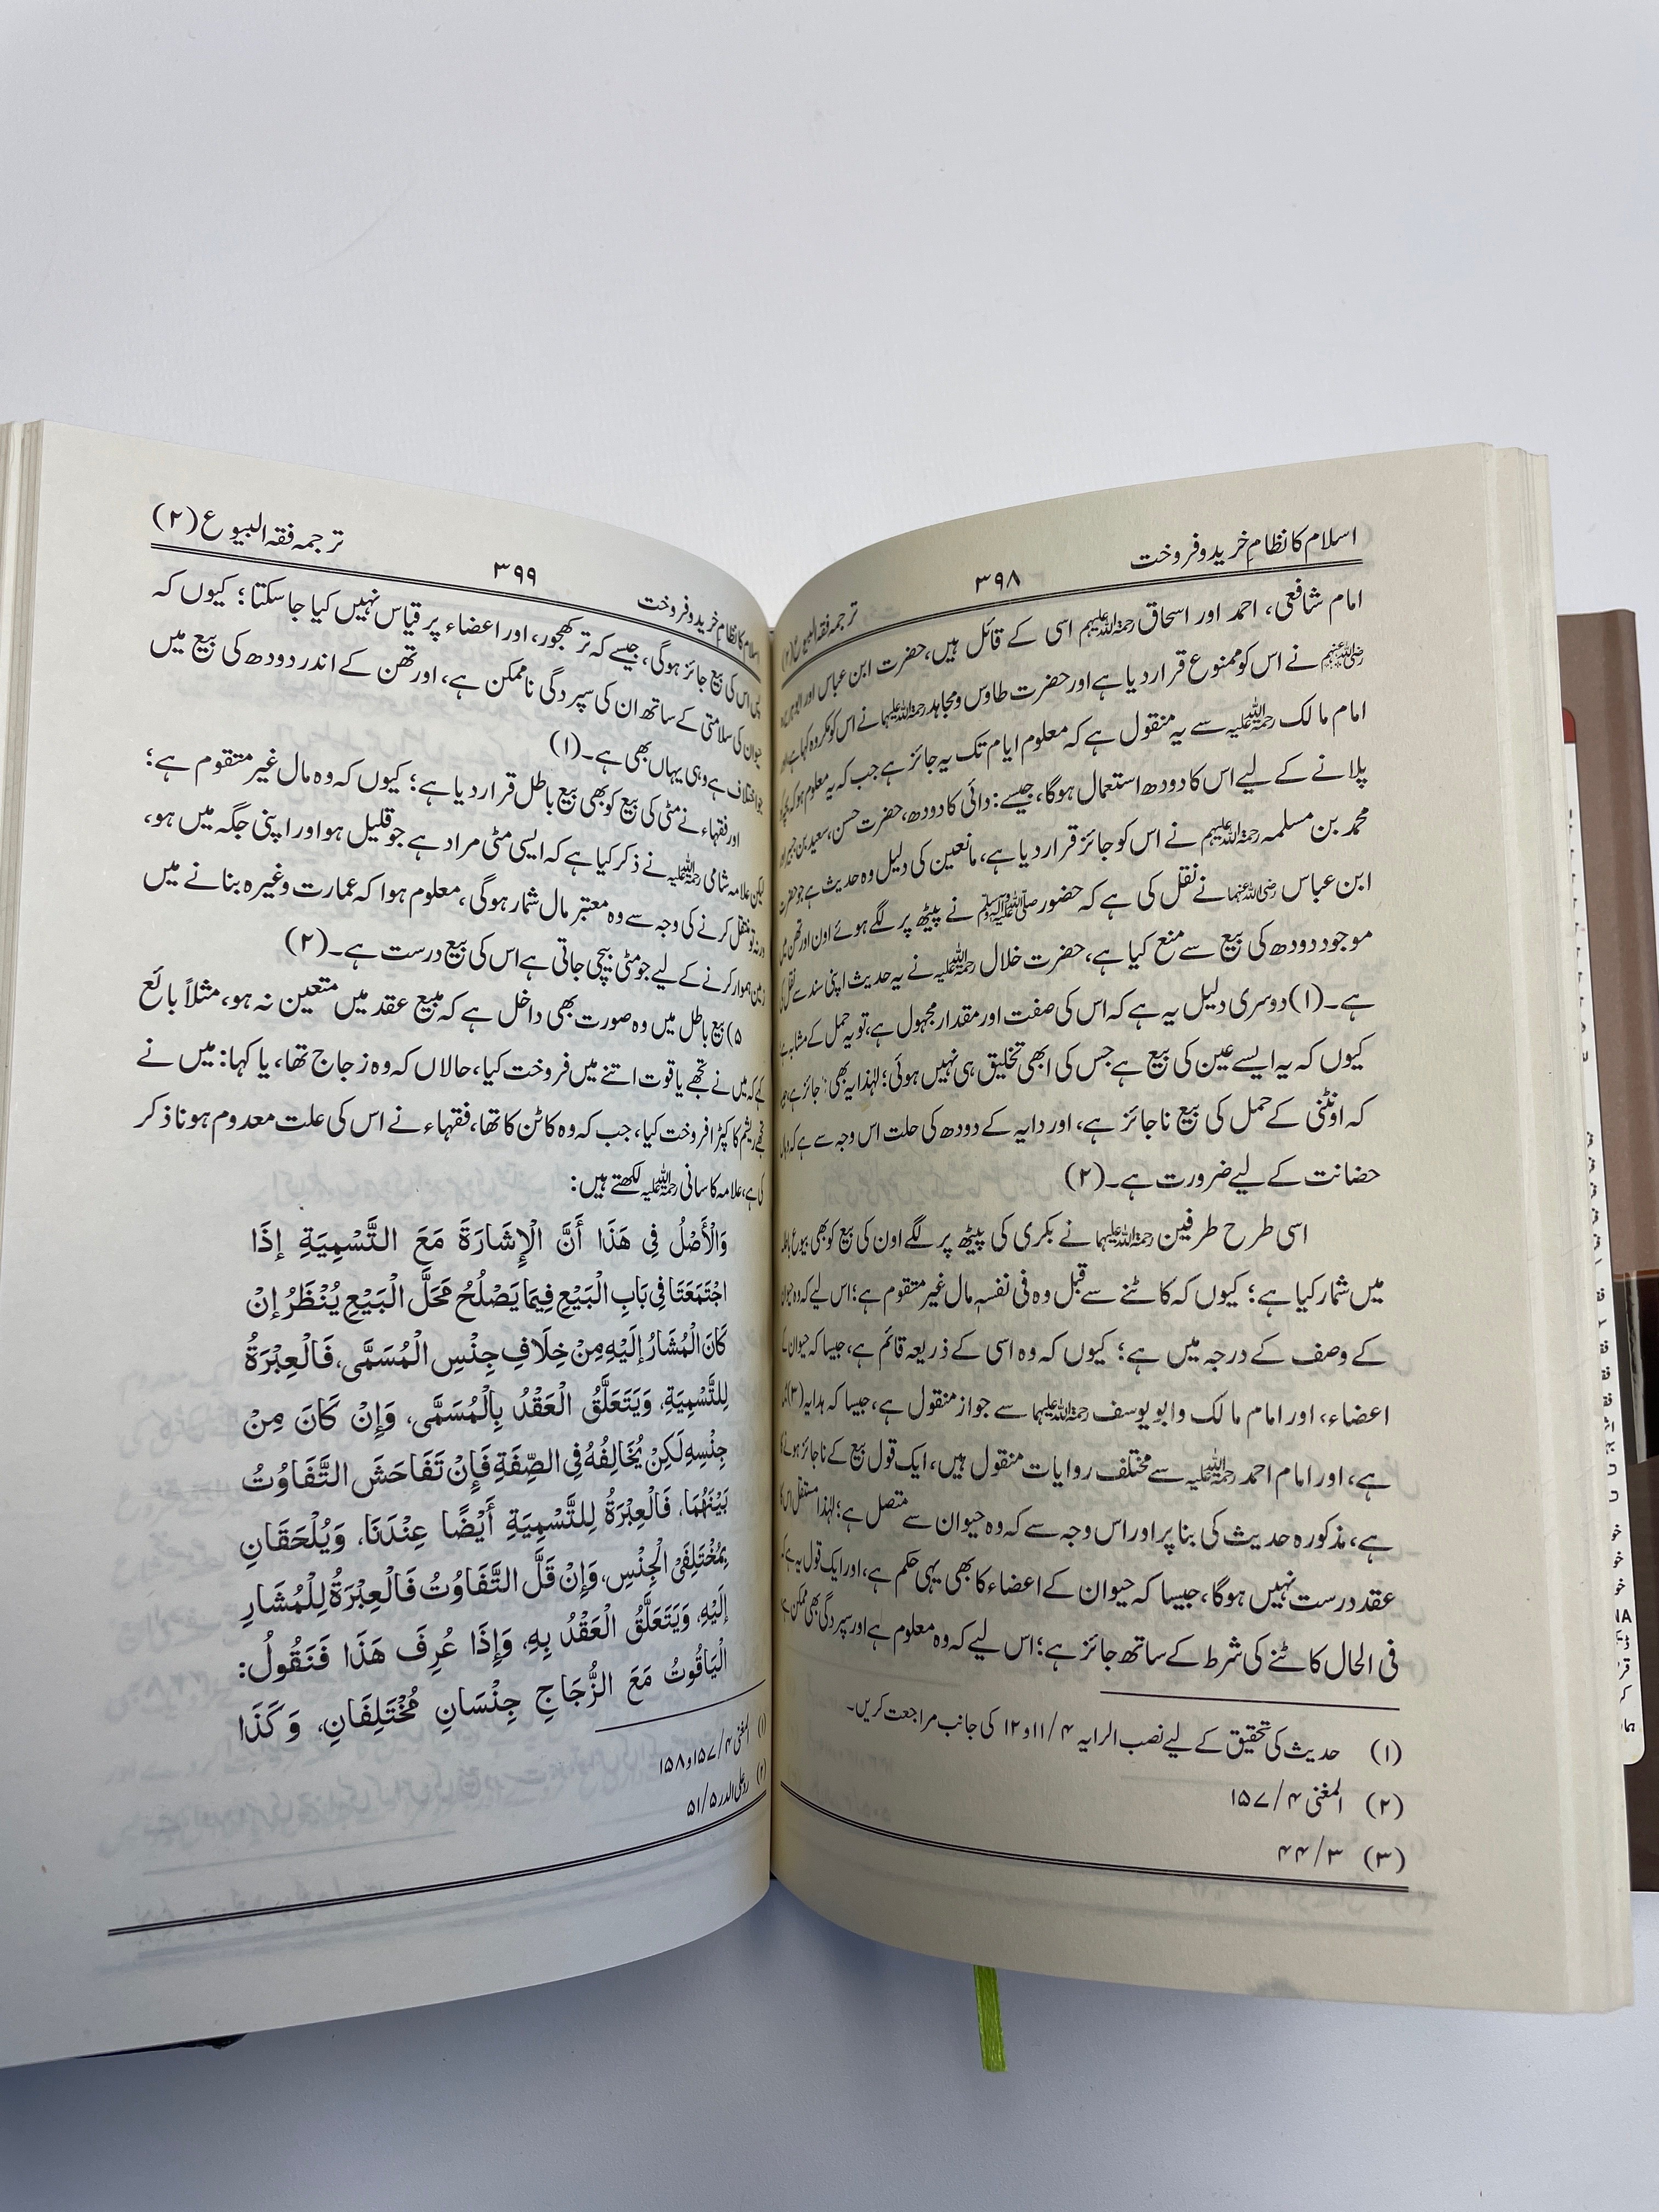 اسلام کا نظام خرید و فروخت
۳۹۸
ترجمہ فقہ البیوع (۲)
امام شافعی، احمد اور اسحاق رحمۃ اللہ علیہم اسی کے قائل ہیں، حضرت ابن عباس اور
رضی اللہ عنہم نے اس کو ممنوع قرار دیا ہے اور حضرت طاوس و مجاہد رحمۃ اللہ علیہما نے اس کو مکروہ کہا ہے اور
امام مالک رحمۃ اللہ علیہ سے یہ منقول ہے کہ معلوم ایام تک یہ جائز ہے جب کہ یہ معلوم ہو کہ
پلانے کے لیے اس کا دودھ استعمال ہوگا، جیسے: دائی کا دودھ، حضرت حسن، سعید بن جبیر اور
محمد بن مسلمہ رحمۃ اللہ علیہم نے اس کو جائز قرار دیا ہے، مانعین کی دلیل وہ حدیث ہے جو حضرت
ابن عباس رضی اللہ عنہما نے نقل کی ہے کہ حضور صلی اللہ علیہ وسلم نے پیٹھ پر لگے ہوئے اون اور تھن میں
موجود دودھ کی بیع سے منع کیا ہے، حضرت خلال رحمۃ اللہ علیہ نے یہ حدیث اپنی سند سے نقل کی
ہے۔(۱) دوسری دلیل یہ ہے کہ اس کی صفت اور مقدار مجہول ہے، تو یہ حمل کے مشابہ ہے
کیوں کہ یہ ایسے عین کی بیع ہے جس کی ابھی تخلیق ہی نہیں ہوئی؛ لہٰذا یہ بھی جائز ہے،
کہ اونٹنی کے حمل کی بیع ناجائز ہے، اور دایہ کے دودھ کی حلت اس وجہ سے ہے کہ وہاں
حضانت کے لیے ضرورت ہے۔(۲)
اسی طرح طرفین رحمۃ اللہ علیہما نے بکری کی پیٹھ پر لگے اون کی بیع کو بھی بیوع باطلہ
میں شمار کیا ہے؛ کیوں کہ کاٹنے سے قبل وہ فی نفسہٖ مال غیر متقوم ہے؛ اس لیے کہ وہ حیوان
کے وصف کے درجہ میں ہے؛ کیوں کہ وہ اسی کے ذریعہ قائم ہے، جیسا کہ حیوان کے
اعضاء، اور امام مالک وابو یوسف رحمۃ اللہ علیہما سے جواز منقول ہے، جیسا کہ ہدایہ (۳)
ہے، اور امام احمد رحمۃ اللہ علیہ سے مختلف روایات منقول ہیں، ایک قول بیع کے ناجائز ہونے کا
ہے، مذکورہ حدیث کی بنا پر اور اس وجہ سے کہ وہ حیوان سے متصل ہے؛ لہٰذا مستقل اس کا
عقد درست نہیں ہوگا، جیسا کہ حیوان کے اعضاء کا بھی یہی حکم ہے، اور ایک قول یہ ہے کہ
فی الحال کاٹنے کی شرط کے ساتھ جائز ہے؛ اس لیے کہ وہ معلوم ہے اور سپردگی بھی ممکن ہے
(۱) حدیث کی تحقیق کے لیے نصب الرایہ ۴/۱۱و۱۲ کی جانب مراجعت کریں۔
(۲) المغنی ۴/۱۵۷
(۳) ۳/۴۴
اسلام کا نظام خرید و فروخت
۳۹۹
ترجمہ فقہ البیوع (۲)
اس کی بیع جائز ہوگی، جیسے کہ تر کھجور، اور اعضاء پر قیاس نہیں کیا جا سکتا؛ کیوں کہ
حیوان کی سلامتی کے ساتھ ان کی سپردگی ناممکن ہے، اور تھن کے اندر دودھ کی بیع میں
جو اختلاف ہے وہی یہاں بھی ہے۔(۱)
اور فقہاء نے مٹی کی بیع کو بھی بیع باطل قرار دیا ہے؛ کیوں کہ وہ مال غیر متقوم ہے؛
لیکن علامہ شامی رحمۃ اللہ علیہ نے ذکر کیا ہے کہ ایسی مٹی مراد ہے جو قلیل ہو اور اپنی جگہ میں ہو،
ورنہ تو منتقل کرنے کی وجہ سے وہ معتبر مال شمار ہوگی، معلوم ہوا کہ عمارت وغیرہ بنانے میں
زمین ہموار کرنے کے لیے جو مٹی بیچی جاتی ہے اس کی بیع درست ہے۔(۲)
۵) بیع باطل میں وہ صورت بھی داخل ہے کہ مبیع عقد میں متعین نہ ہو، مثلاً بائع
کہے کہ میں نے تجھے یاقوت اتنے میں فروخت کیا، حالاں کہ وہ زجاج تھا، یا کہا: میں نے
تجھے ریشم کا کپڑا فروخت کیا، جب کہ وہ کاٹن کا تھا، فقہاء نے اس کی علت معدوم ہونا ذکر
کی ہے، علامہ کاسانی رحمۃ اللہ علیہ لکھتے ہیں:
وَالْأَصْلُ فِي هَذَا أَنَّ الْإِشَارَةَ مَعَ التَّسْمِيَةِ إِذَا
اجْتَمَعَتَا فِي بَابِ الْبَيْعِ فِيمَا يَصْلُحُ مَحَلَّ الْبَيْعِ يُنْظَرُ إِنْ
كَانَ الْمُشَارُ إِلَيْهِ مِنْ خِلَافِ جِنْسِ الْمُسَمَّى، فَالْعِبْرَةُ
لِلتَّسْمِيَةِ، وَيَتَعَلَّقُ الْعَقْدُ بِالْمُسَمَّى، وَإِنْ كَانَ مِنْ
جِنْسِهِ لَكِنْ يُخَالِفُهُ فِي الصِّفَةِ فَإِنْ تَفَاحَشَ التَّفَاوُتُ
بَيْنَهُمَا، فَالْعِبْرَةُ لِلتَّسْمِيَةِ أَيْضًا عِنْدَنَا، وَيُلْحَقَانِ
بِمُخْتَلِفَيْ الْجِنْسِ، وَإِنْ قَلَّ التَّفَاوُتُ فَالْعِبْرَةُ لِلْمُشَارِ
إِلَيْهِ، وَيَتَعَلَّقُ الْعَقْدُ بِهِ، وَإِذَا عُرِفَ هَذَا فَنَقُولُ:
الْيَاقُوتُ مَعَ الزُّجَاجِ جِنْسَانِ مُخْتَلِفَانِ، وَكَذَا
(۱) المغنی ۴/۱۵۷و۱۵۸
(۲) رد علی الدر ۵/۵۱